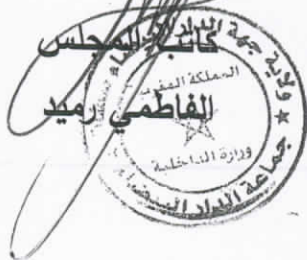 كاتب المجلس
الفاطمي رميد
ولاية جهة الدار البيضاء
المملكة المغربية
وزارة الداخلية
جماعة الدار البيضاء